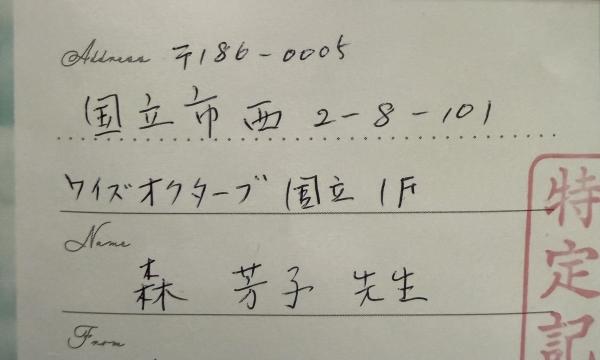 Address 〒186-0005
国立市西 2-8-101
ワイズオクターブ 国立 1F
Name
森 芳子 先生
From
特定記